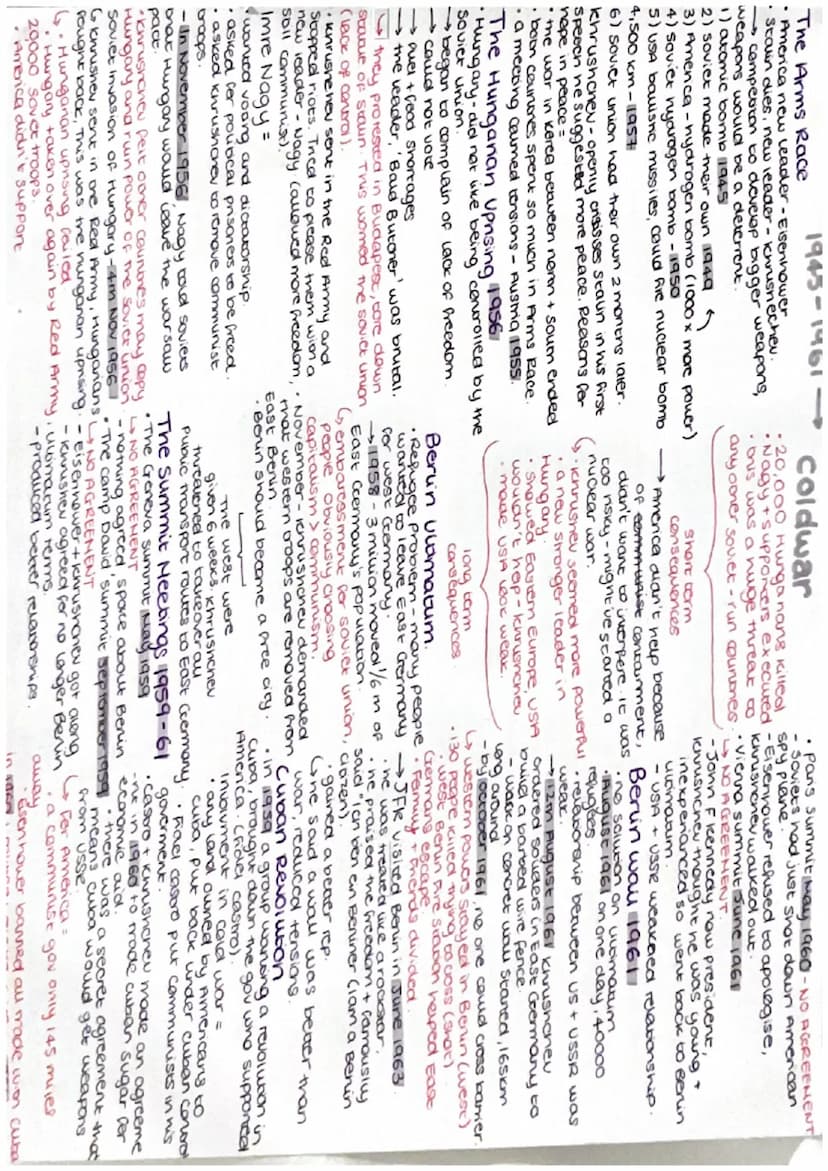 1945-1961 → Coldwar
The Arms Race
· America new leader - Eisenhower
· Stalin dies, new leader - Khrushchev.
→ competition to develop bigger weapons,
weapons would be a deterrent.
1) atomic bomb 1945
2) soviet made their own 1949
3) America - hydrogen bomb (1000 x more power)
4) Soviet hydrogen bomb - 1950
5) USA ballistic missiles, could fire nuclear bomb
4,500 km - 1957
6) Soviet union had their own 2 months later.
Khrushchev - openly critisises Stalin in his first
speech he suggested more peace. Reasons for
hope in peace =
· the war in Korea between north + south ended
· both countries spent so much in Arms Race.
· a meeting calmed tensions - Austria 1955.
The Hungarian Uprising 1956
· Hungary - did not like being controlled by the
Soviet Union.
→ began to complain of lack of freedom.
→ could not vote
→ fuel + food shortages
→ the leader, 'Bald Butcher' was brutal.
↳ they protested in Budapest, tore down
statue of Stalin. This worried the soviet union
(lack of control).
· Khrushchev sent in the Red Army and
stopped riots. Tried to please them with a
new leader - Nagy (allowed more freedom,
still communist).
Imre Nagy =
· wanted voting and dictatorship.
· asked for political prisoners to be freed.
· asked Khrushchev to remove communist
troops.
- In November 1956 Nagy told soviets
that Hungary would leave the warsaw
pact.
· Khrushchev felt other countries may copy
Hungary and ruin power of the Soviet Union.
Soviet invasion of Hungary - 4th Nov 1956
↳ Khrushev sent in one Red Army, Hungarians
fought back, This was the Hungarian uprising.
↳ · Hungarian uprising failed
· Hungary taken over again by Red Army,
20000 Soviet troops.
· America didn't support
· 20,000 Hungarians killed
· Nagy + supporters executed
· this was a huge threat to
any other soviet-run countries
short term
consequences
→ America didn't help because
of communist containment,
didn't want to interfere. It was
too risky - might've started a
nuclear war.
↳ · Khrushev seemed more powerful
· a new stronger leader in
Hungary.
· showed Eastern Europe, USA
wouldn't help - Khrushchev
· made USA look weak.
long term
consequences.
Berlin Ultimatum.
· Refugee problem - many people
wanted to leave East Germany
for west Germany.
→ 1958 - 3 million moved 1/6 th of
East Germany's population.
↳ embarassment for soviet union,
people obviously choosing
capitalism > communism.
· November - Khrushchev demanded
that western troops are removed from
East Berlin.
· Berlin should become a free city.
The west were
given 6 weeks, Khrushchev
threatened to takeover all
public transport routes to East Germany.
The Summit Meetings 1959-61
· The Geneva summit May 1959
↳ NO AGREEMENT
- nothing agreed, spoke about Berlin
· The camp David summit September 1959
↳ NO AGREEMENT
- Eisenhower + Khrushchev got along
- Khrushev agreed for no longer Berlin
ultimatum terms.
- produced better relationships.
· Paris summit May 1960 - NO AGREEMENT
- Soviets had just shot down American
spy plane.
- Eisenhower refused to apologise,
Khrushchev walked out.
· Vienna summit June 1961
↳ NO AGREEMENT.
- John F Kennedy now president,
Khrushchev thought he was young +
inexperienced so went back to Berlin
ultimatum.
- USA + USSR weakened relationship.
Berlin wall 1961
· no solution on ultimatum
August 1961 on one day, 40000
refugees.
· relationship between US + USSR was
weak.
→ 12th August 1961 Khrushchev
ordered soldiers in East Germany to
build a barbed wire fence.
- work on concrete wall started, 165km
long around
- by October 1961 no one could cross barrier.
↳ western powers stayed in Berlin (west)
· 130 people killed trying to cross (shot)
· West Berlin Fire Station helped East
Germans escape.
· Family + friends divided.
→ JFK visited Berlin in June 1963
· he was treated like a rockstar.
· he praised the freedom + famously
said 'Ich bin ein Berliner' (I am a Berlin
citizen).
· gained a better rep.
↳ he said a wall was better than
war, reduced tensions.
Cuban Revolution
· In 1959 a group wanting a revolution in
Cuba, brought down the gov who supported
America (Fidel Castro).
Involvment in cold war =
· any land owned by Americans to
Cuba, put back under Cuban control
· Fidel Castro put communists in his
goverment.
· Castro + Khrushchev made an agreeme
-nt in 1960 to trade Cuban sugar for
economic aid.
· there was a secret agreement that
means Cuba would get weapons
from USSR.
↳ For America =
· a communist gov only 145 miles
away.
· Eisenhower banned all trade with Cuba